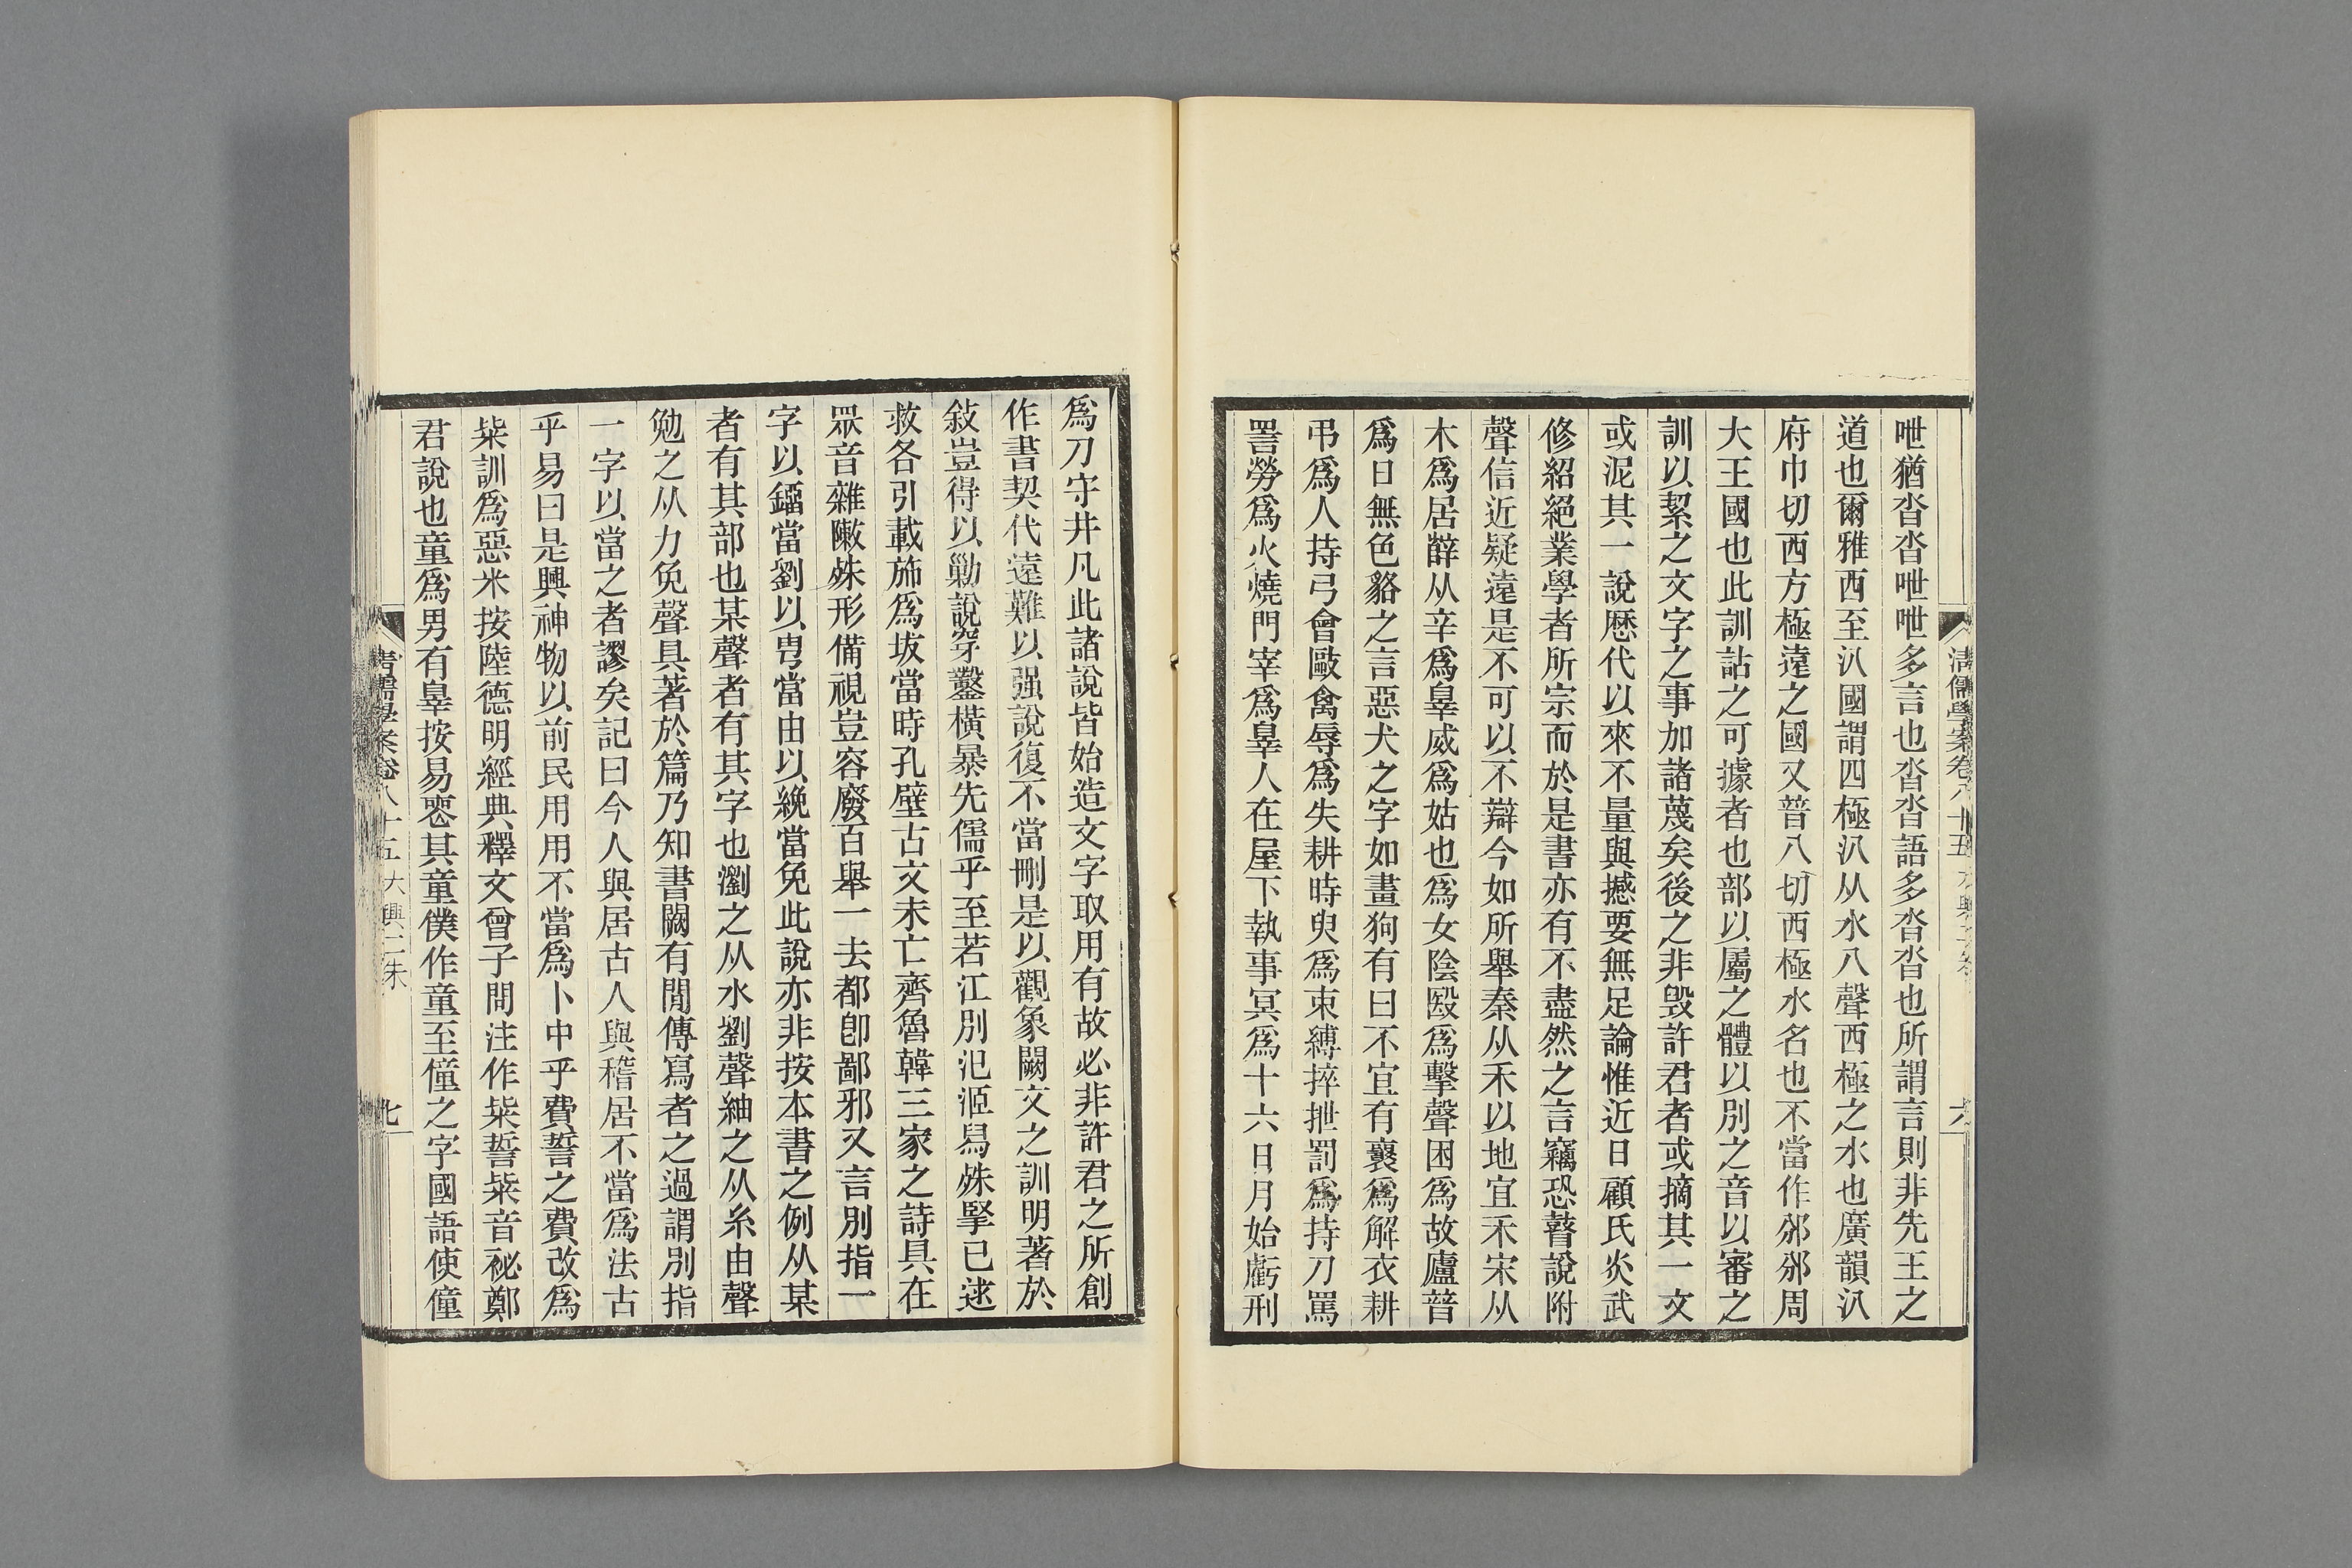 呭猶沓沓呭呭多言也沓沓語多沓沓也所謂言則非先王之
道也爾雅西至汃國謂四極汃从水八聲西極之水也廣韻汃
府巾切西方極遠之國又普八切西極水名也不當作邠邠周
大王國也此訓詁之可據者也部以屬之體以別之音以審之
訓以絜之文字之事加諸蔑矣後之非毀許君者或摘其一文
或泥其一說歷代以來不量與撼要無足論惟近日顧氏炎武
修紹絕業學者所宗而於是書亦有不盡然之言竊恐瞽說附
聲信近疑遠是不可以不辯今如所舉秦从禾以地宜禾宋从
木爲居薛从辛爲辠威爲姑也爲女陰毆爲擊聲困爲故廬普
爲日無色貉之言惡犬之字如畫狗有曰不宜有襄爲解衣耕
弔爲人持弓會敺禽辱爲失耕時臾爲束縛捽抴罰爲持刀罵
詈勞爲火燒門宰爲辠人在屋下執事冥爲十六日月始虧刑
清儒學案卷八十五
爲刀守井凡此諸說皆始造文字取用有故必非許君之所創
作書契代遠難以强說復不當刪是以觀象闕文之訓明著於
敍豈得以勦說穿鑿橫暴先儒乎至若江別汜洍舃殊掔已逑
救各引載斾爲坺當時孔壁古文未亡齊魯韓三家之詩具在
眾音雜陳殊形備視豈容廢百舉一去都卽鄙邪又言別指一
字以鎦當劉以甹當由以絻當免此說亦非按本書之例从某
者有其部也某聲者有其字也瀏之从水劉聲紬之从糸由聲
勉之从力免聲具著於篇乃知書闕有閒傳寫者之過謂別指
一字以當之者謬矣記曰今人與居古人與稽居不當爲法古
乎易曰是興神物以前民用用不當爲卜中乎費誓之費改爲
粊訓爲惡米按陸德明經典釋文曾子問注作粊誓粊音祕鄭
君說也童爲男有辠按易喪其童僕作童至僮之字國語使僮
清儒學案卷八十五 大興二朱
七